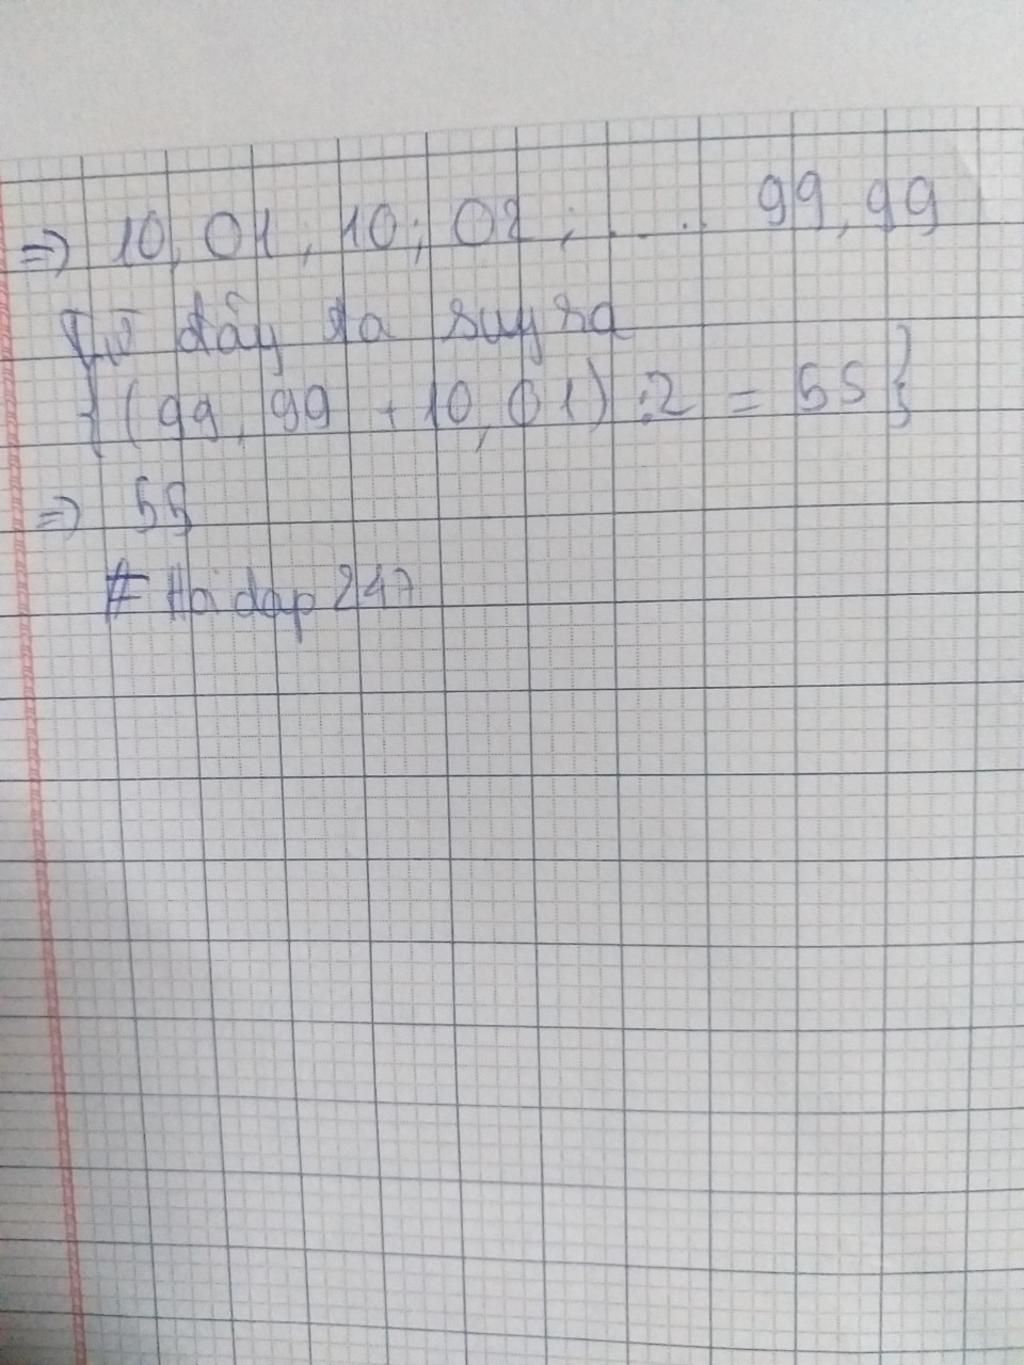 => 10,01, 10; 02 ; .... 99,99
Từ đây ta suy ra
{(99,99 + 10,01) :2 = 55}
=> 55
# Hoi dap 247